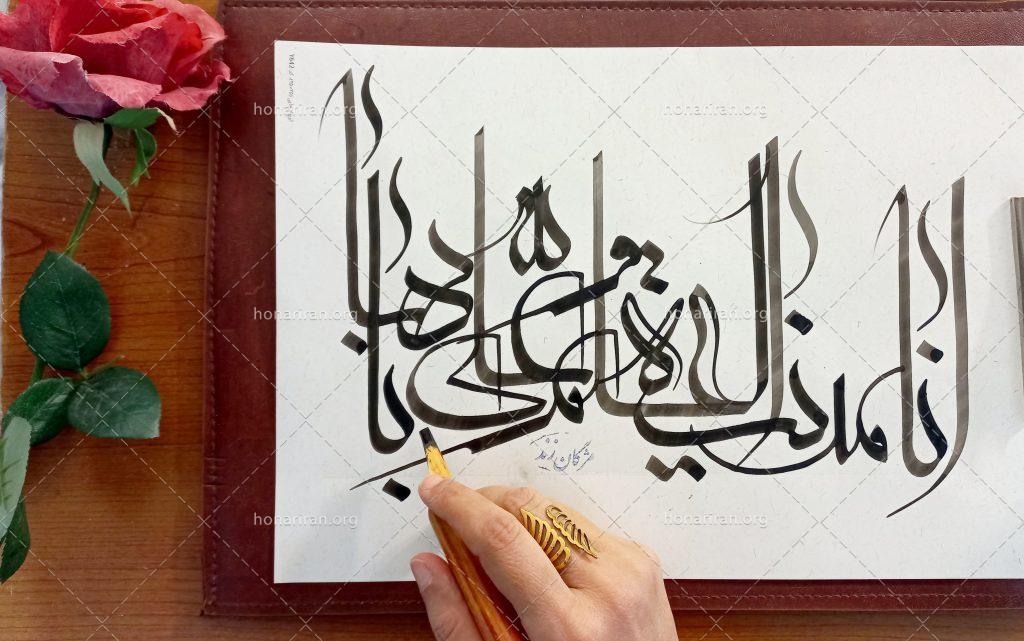 honariran.org honariran.org
انا مدینة العلم و علی بابها
honariran.org honariran.org
مژگان زند
honariran.org honariran.org